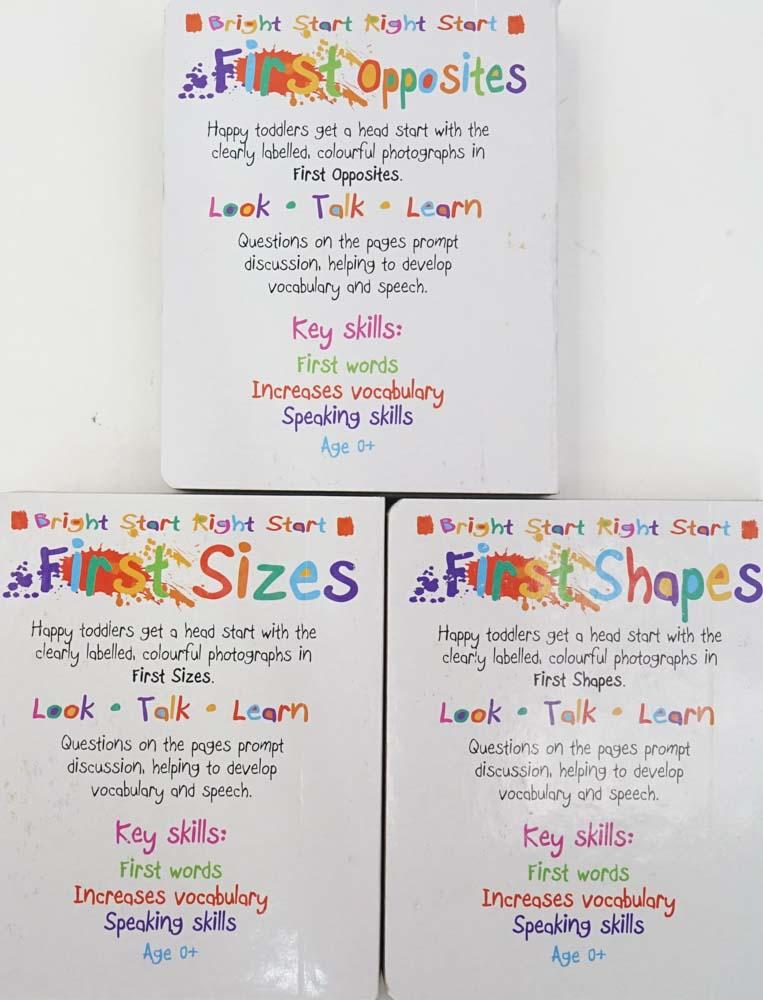 Bright Start Right Start
First Opposites
Happy toddlers get a head start with the
clearly labelled, colourful photographs in
First Opposites.
Look • Talk • Learn
Questions on the pages prompt
discussion, helping to develop
vocabulary and speech.
Key skills:
First words
Increases vocabulary
Speaking skills
Age 0+
Bright Start Right Start
First Sizes
Happy toddlers get a head start with the
clearly labelled, colourful photographs in
First Sizes.
Look • Talk • Learn
Questions on the pages prompt
discussion, helping to develop
vocabulary and speech.
Key skills:
First words
Increases vocabulary
Speaking skills
Age 0+
Bright Start Right Start
First Shapes
Happy toddlers get a head start with the
clearly labelled, colourful photographs in
First Shapes.
Look • Talk • Learn
Questions on the pages prompt
discussion, helping to develop
vocabulary and speech.
Key skills:
First words
Increases vocabulary
Speaking skills
Age 0+